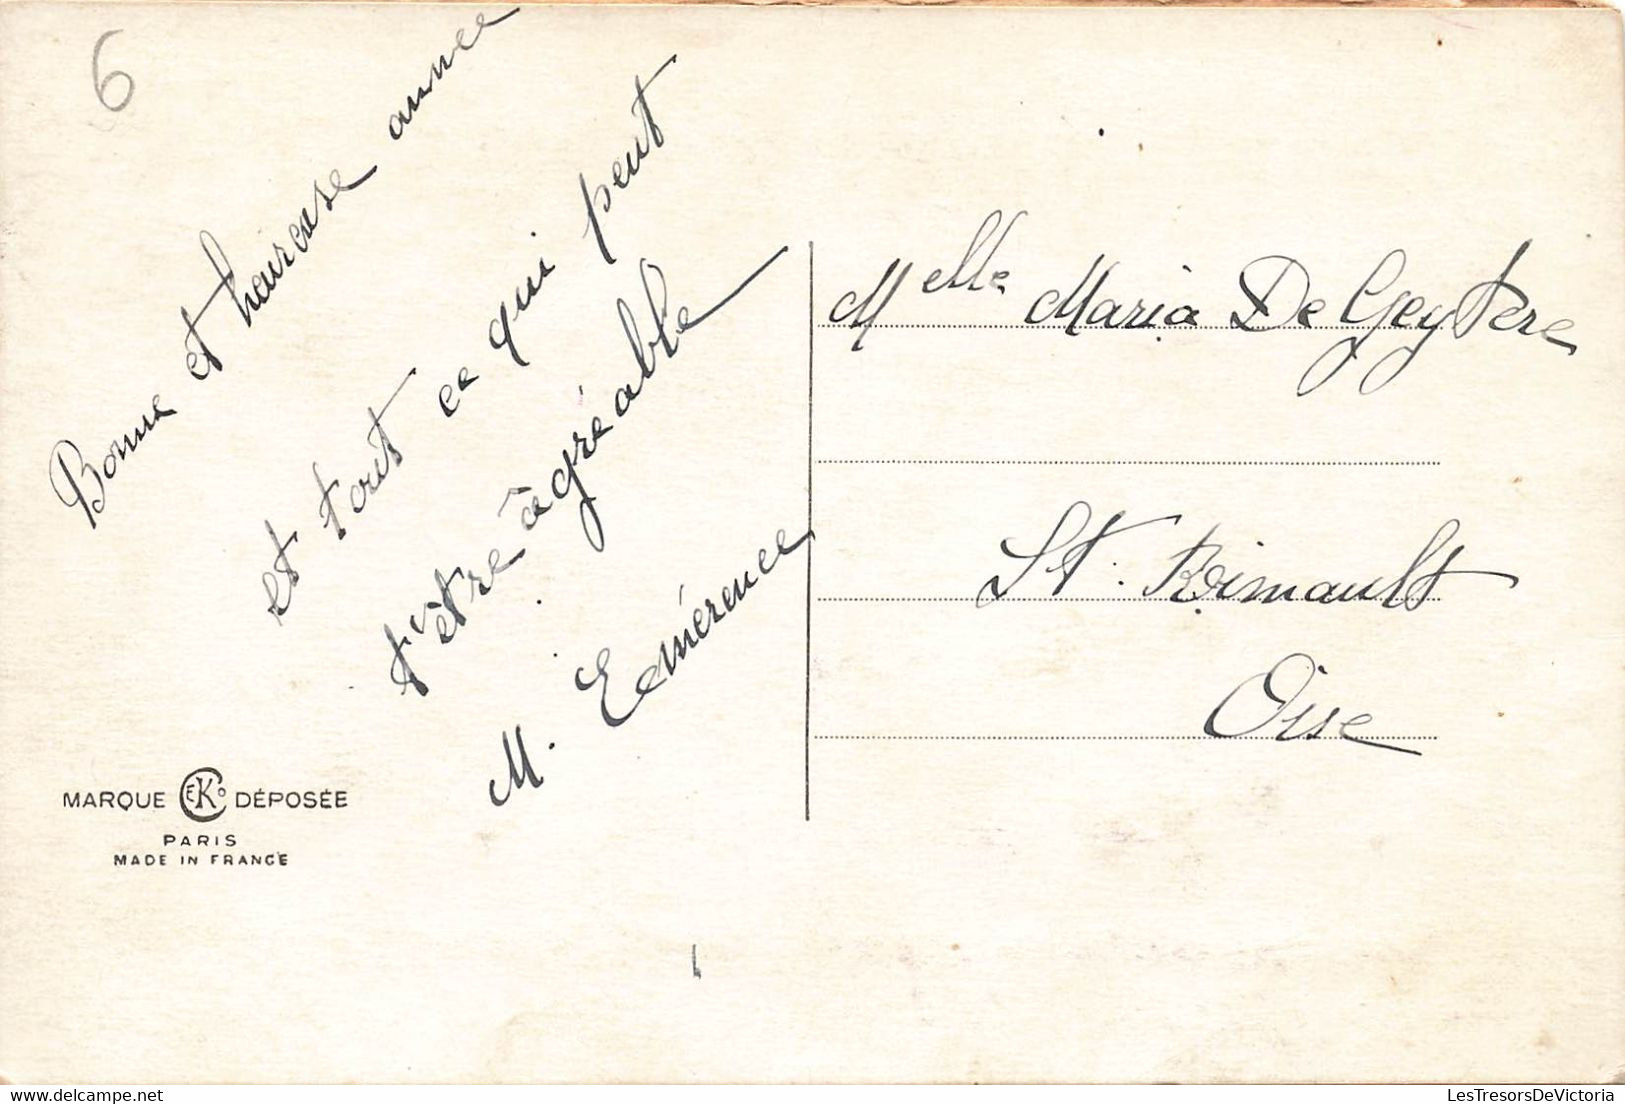 6
Bonne et heureuse année
et tout ce qui peut
t'être agréable
M. Edmérence
Melle Maria De Geytere
St. Rimault
Oise
MARQUE EKC DÉPOSÉE
PARIS
MADE IN FRANCE
LesTresorsDeVictoria